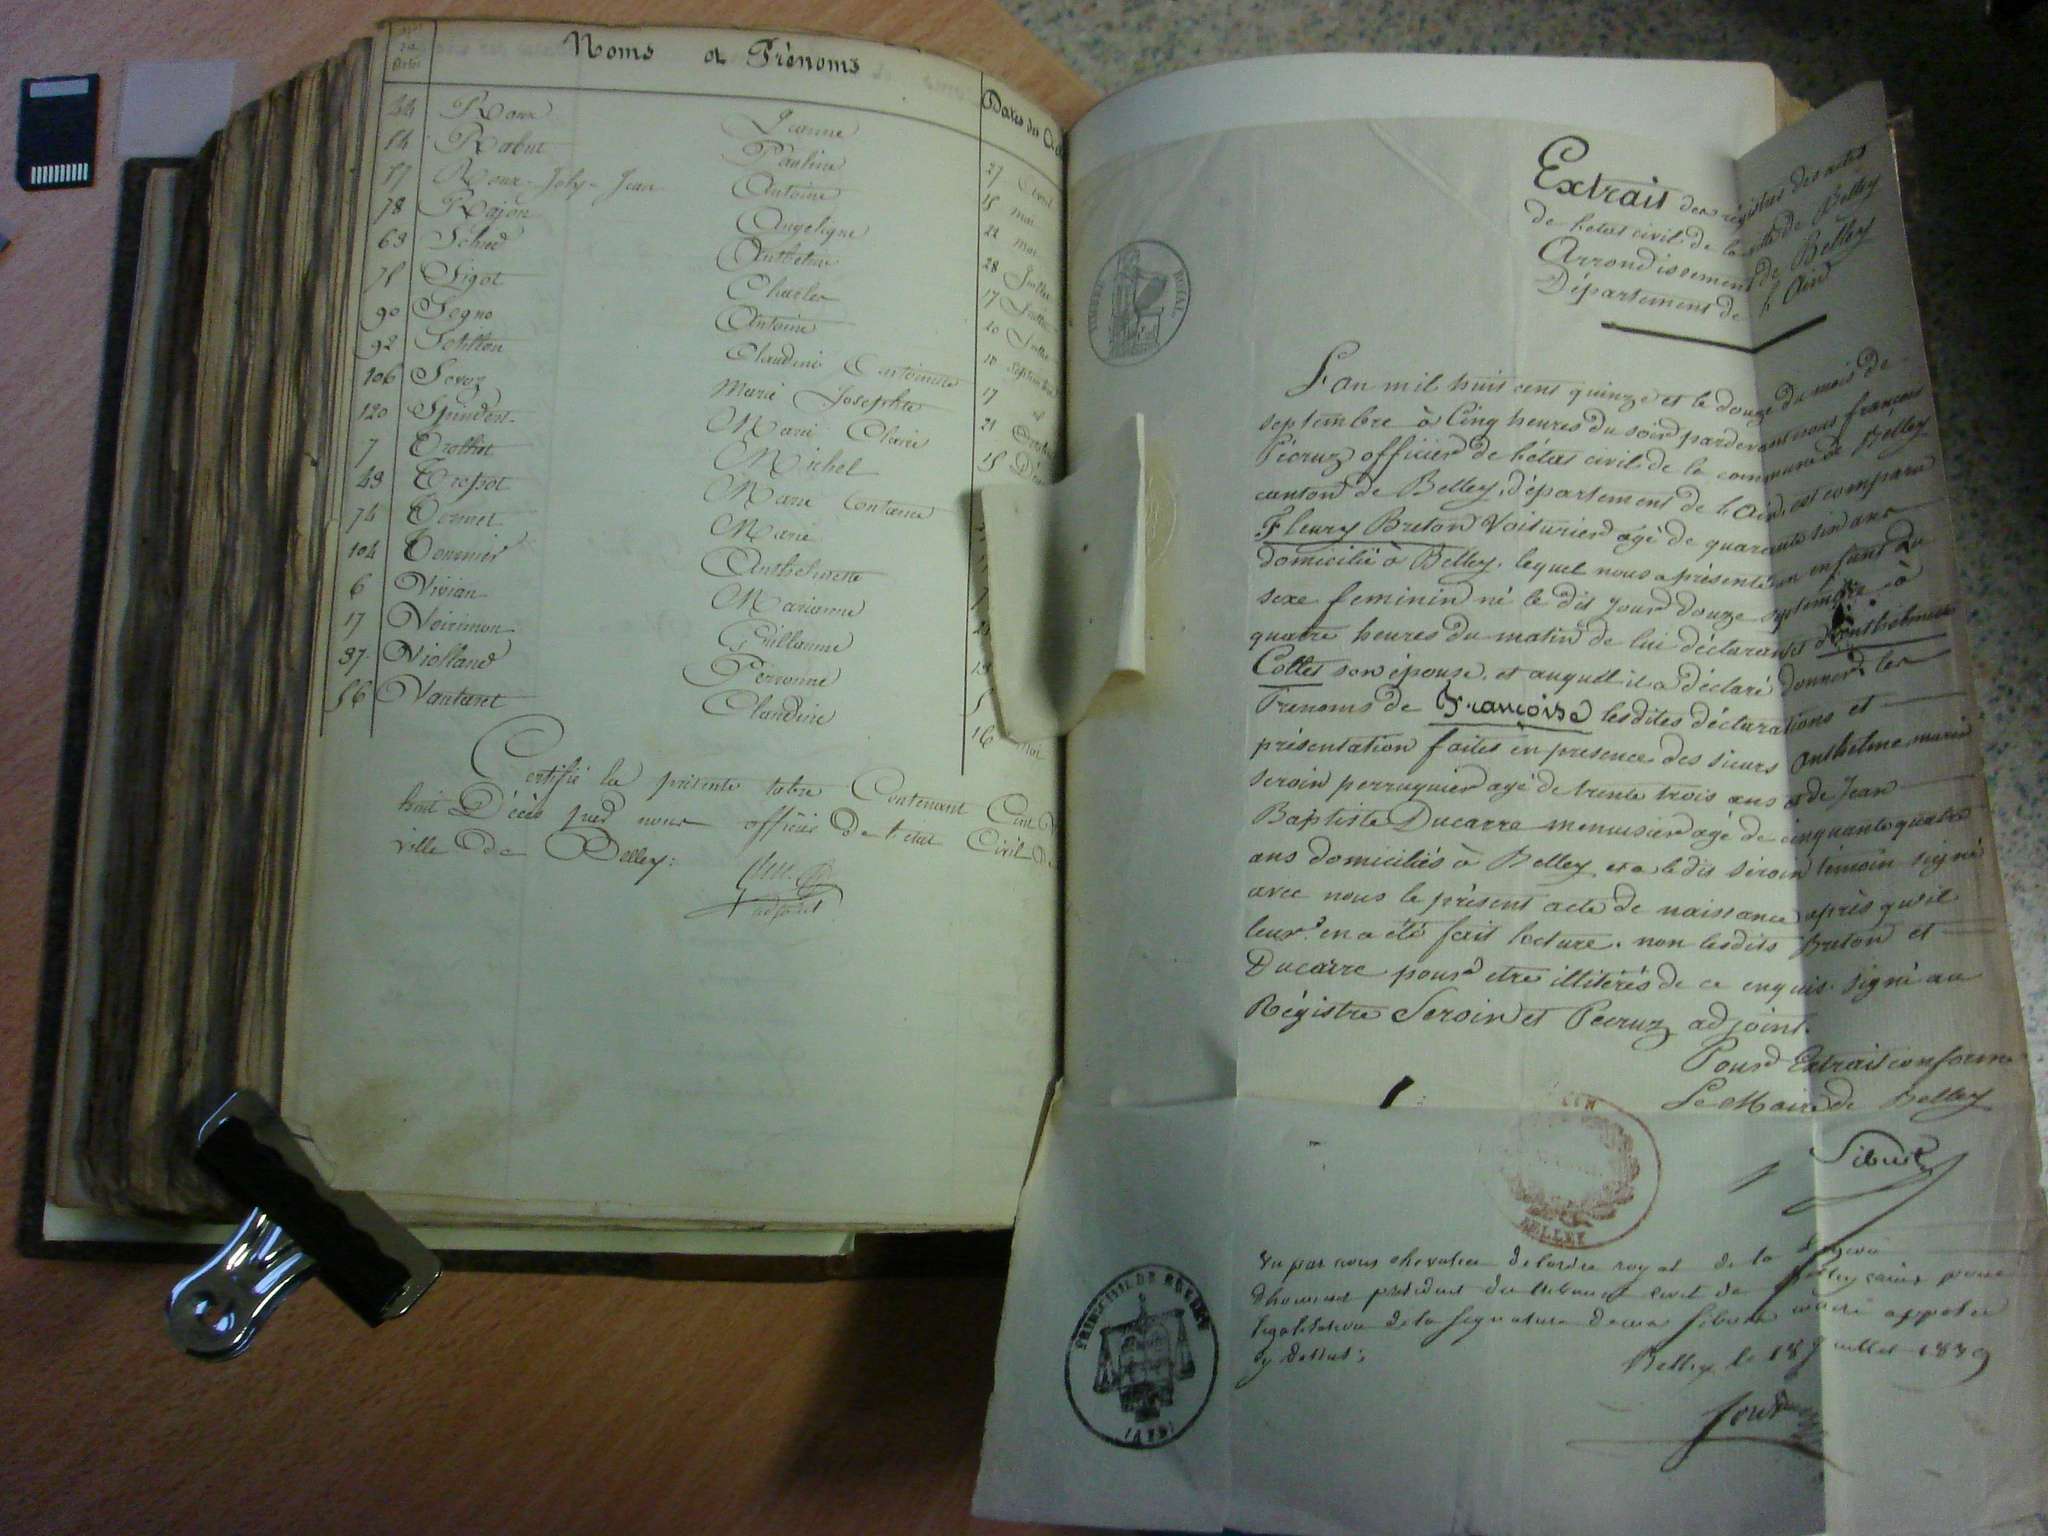 Noms et Prénoms
Dates des
44 Roux Jeanne 27 avril
54 Rabut Pauline 15 mai
57 Roux-Joly-Jean Antoine 22 mai
78 Rajon Angelique 28 Juillet
69 Anthelme 17 Juillet
75 Sigot Charles 20 Juillet
90 Segno Antoine 10 septembre
92 Claudine Antoinette 17 id
106 Marie Josephte 21
120 Marie Claire 15
7 Michel
49 Marie
74 Tournier Marie
104 Anthelmette
6 Vivian Marianne
17 Voirinnon Guillaume
37 Violland Perronne 19
56 Vantaret Claudine 5
16 mai
Certifié la présente table Contenant Cent
huit Décès par nous officier de l'état Civil De
ville de Belley:
adjoint
Extrait des régistres des actes
de l'état civil de la ville de Belley
Arrondissement de Belley
Département de l'Ain
TIMBRE ROYAL
L'an mil huit cent quinze et le douze du mois de
septembre à Cinq heures du soir pardevant nous françois
Pécruz officier de l'état civil de la commune de Belley
canton de Belley, département de l'Ain, est comparu
Fleury Breton Voiturier agé de quarante six ans
domicilié à Belley, lequel nous a présenté un enfant du
sexe feminin né le dit jour douze septembre à
quatre heures du matin de lui déclarant et d'Anthelmette
Collet son épouse, et auquel il a déclaré donner les
Prénoms de Françoise lesdites déclarations et
présentation faites en presence des sieurs Anthelme marin
seroin perruquier agé de trente trois ans et de Jean
Baptiste Ducarre menuisier agé de cinquante quatre
ans domiciliés à Belley, et a le dit séroin témoin signé
avec nous le présent acte de naissance après qu'il
leur en a été fait lecture, non lesdits Breton et
Ducarre pour etre illitérés de ce enquis. signé au
Régistre Seroin et Pecruz adjoint.
Pour Extrait conforme
Le Maire de Belley
Sibuet
BELLEY
Vu par nous chevalier de l'ordre royal de la Légion
d'honneur président du tribunal civil de Belley (ain) pour
légalisation de la signature de mr Sibuet maire apposée
cy dessus;
Belley le 18 Juillet 1839
TRIBUNAL CIVIL DE BELLEY
(AIN)